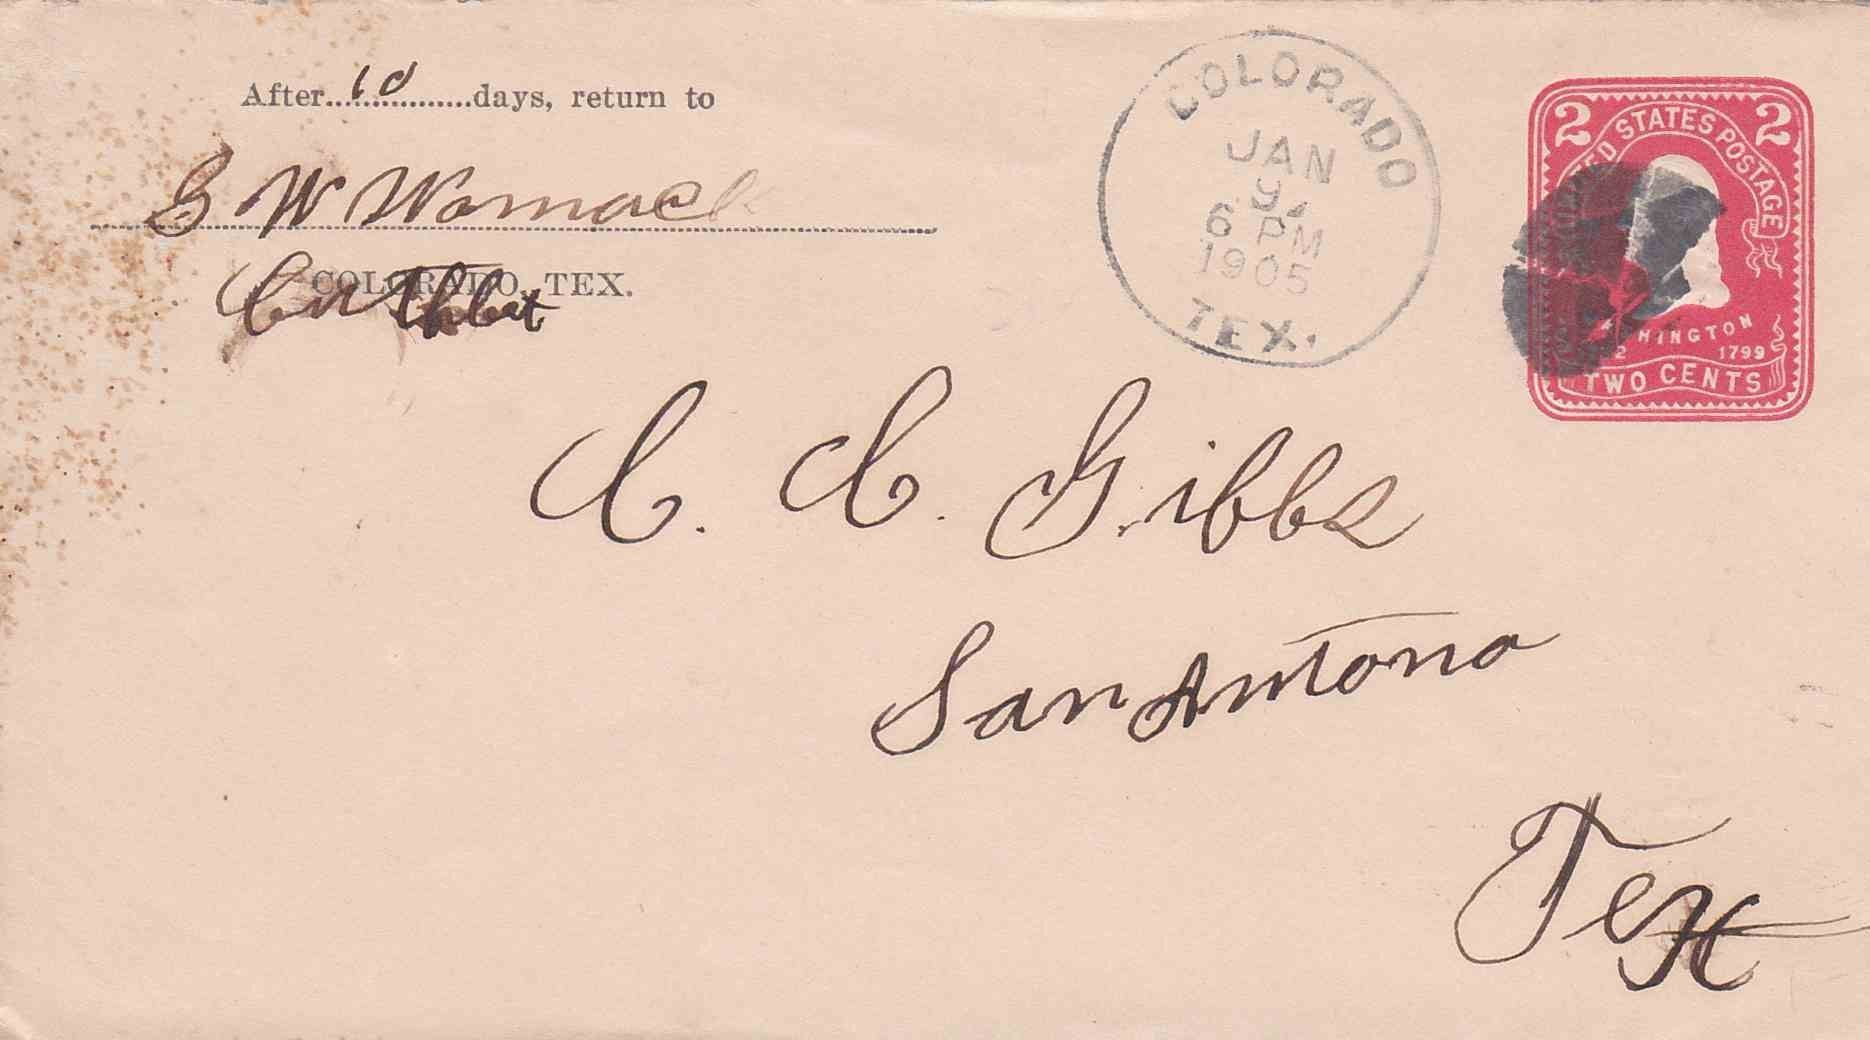 After 10 days, return to
G W Womack
COLORADO, TEX.
Cuthbert
COLORADO
JAN
9
6 PM
1905
TEX.
2 2
STATES POSTAGE
HINGTON
1799
TWO CENTS
C. C. Gibbs
San Antono
Tex